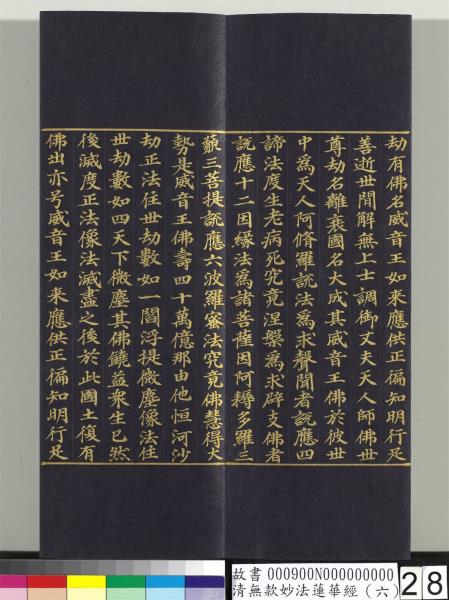 劫有佛名威音王如來應供正徧知明行足
善逝世間解無上士調御丈夫天人師佛世
尊劫名離衰國名大成其威音王佛於彼世
中爲天人阿脩羅說法爲求聲聞者說應四
諦法度生老病死究竟涅槃爲求辟支佛者
說應十二因緣法爲諸菩薩因阿耨多羅三
藐三菩提說應六波羅蜜法究竟佛慧得大
勢是威音王佛壽四十萬億那由他恒河沙
劫正法住世劫數如一閻浮提微塵像法住
世劫數如四天下微塵其佛饒益衆生已然
後滅度正法像法滅盡之後於此國土復有
佛出亦号威音王如來應供正徧知明行足
故書 000900N000000000
清無款妙法蓮華經(六)
28